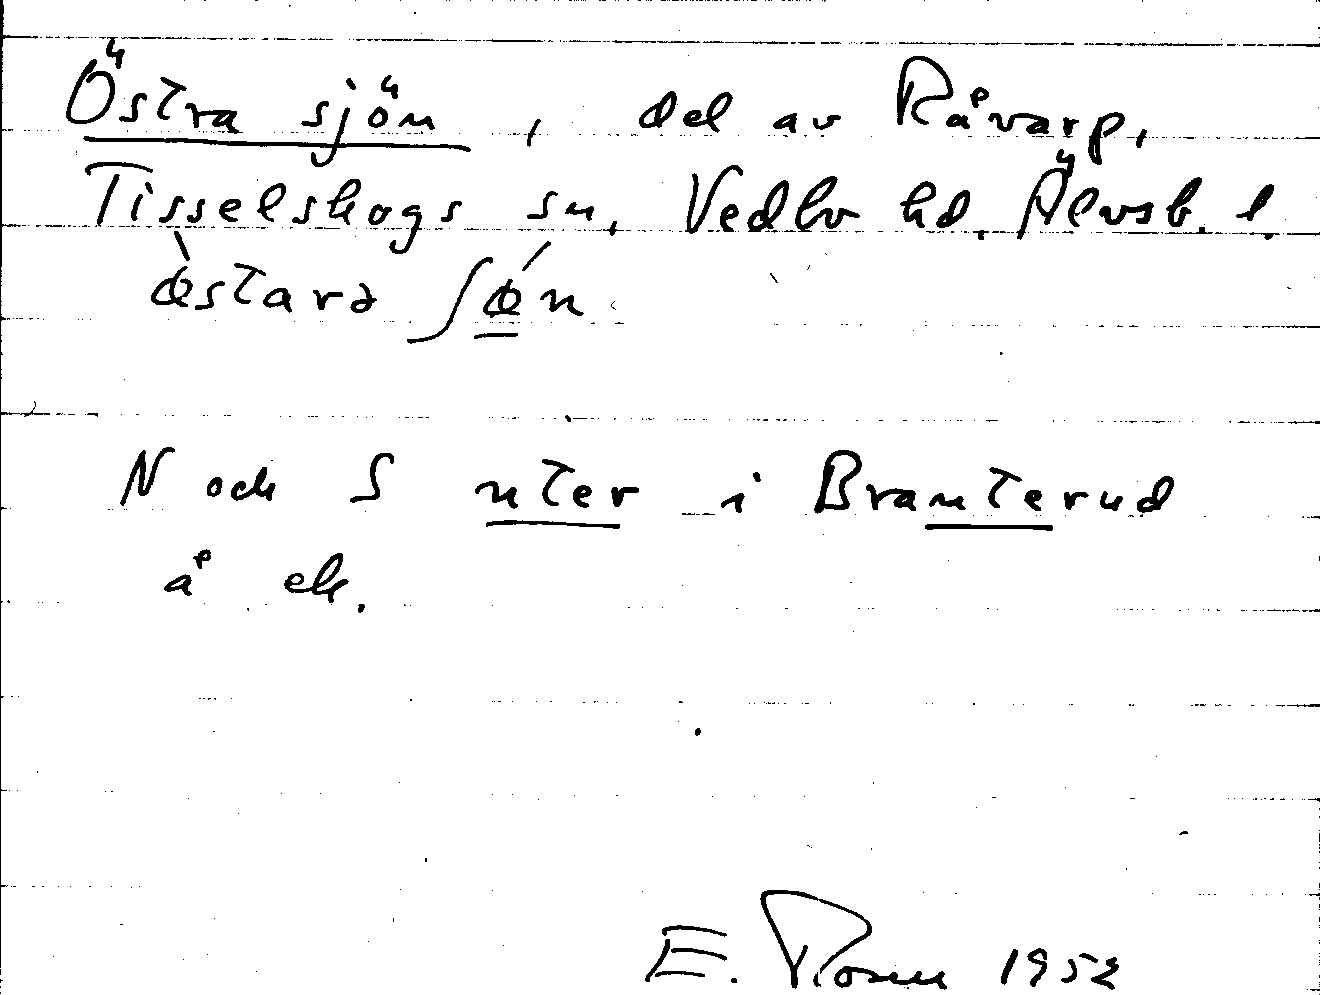 Östra sjön, del av Råvarp,
Tisselskogs sn, Vedbo hd. Älvsb. l.
ὸ̵starə ʃǿn
N och S nter i Branterud
å ek.
E. Rosell 1952